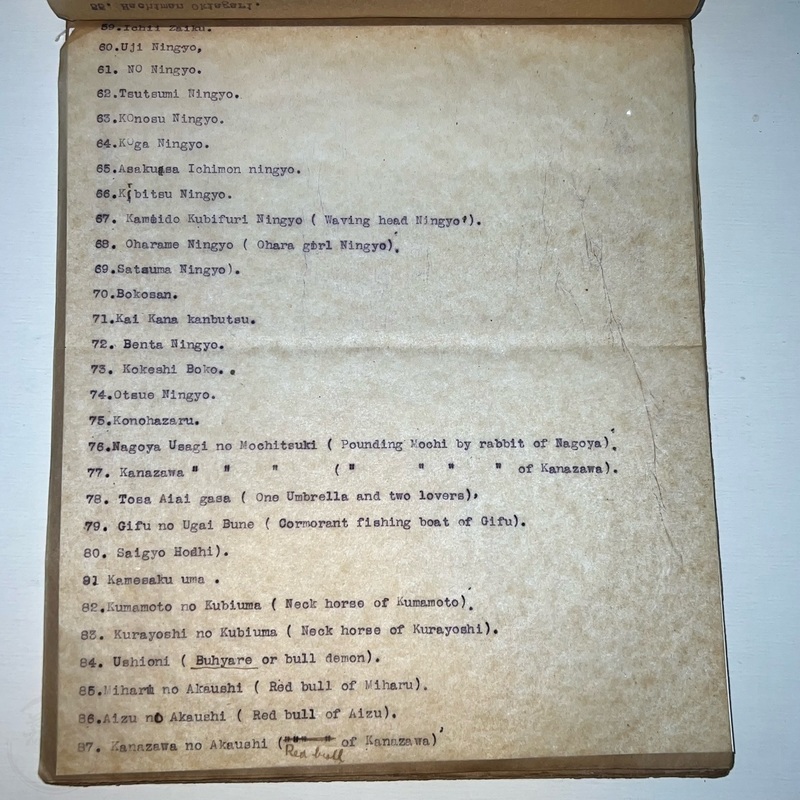 58. Hachiman Okiagari.
59.Ichii Zaiku.
60.Uji Ningyo,
61. NO Ningyo.
62.Tsutsumi Ningyo.
63.KOnosu Ningyo.
64.Koga Ningyo.
65.Asakusa Ichimon ningyo.
66.Kibitsu Ningyo.
67. Kameido Kubifuri Ningyo ( Waving head Ningyo').
68. Oharame Ningyo ( Ohara girl Ningyo).
69.Satsuma Ningyo).
70.Bokosan.
71.Kai Kana kanbutsu.
72. Benta Ningyo.
73. Kokeshi Boko. .
74.Otsue Ningyo.
75.Konohazaru.
76.Nagoya Usagi no Mochitsuki ( Pounding Mochi by rabbit of Nagoya).
77. Kanazawa " " " ( " " " " of Kanazawa).
78. Tosa Aiai gasa ( One Umbrella and two lovers),
79. Gifu no Ugai Bune ( Cormorant fishing boat of Gifu).
80. Saigyo Hodhi).
91 Kamesaku uma .
82.Kumamoto no Kubiuma ( Neck horse of Kumamoto).
83. Kurayoshi no Kubiuma ( Neck horse of Kurayoshi).
84. Ushioni ( Buhyare or bull demon).
85.Miharu no Akaushi ( Red bull of Miharu).
86.Aizu no Akaushi ( Red bull of Aizu).
87. Kanazawa no Akaushi ( of Kanazawa)
Red bull